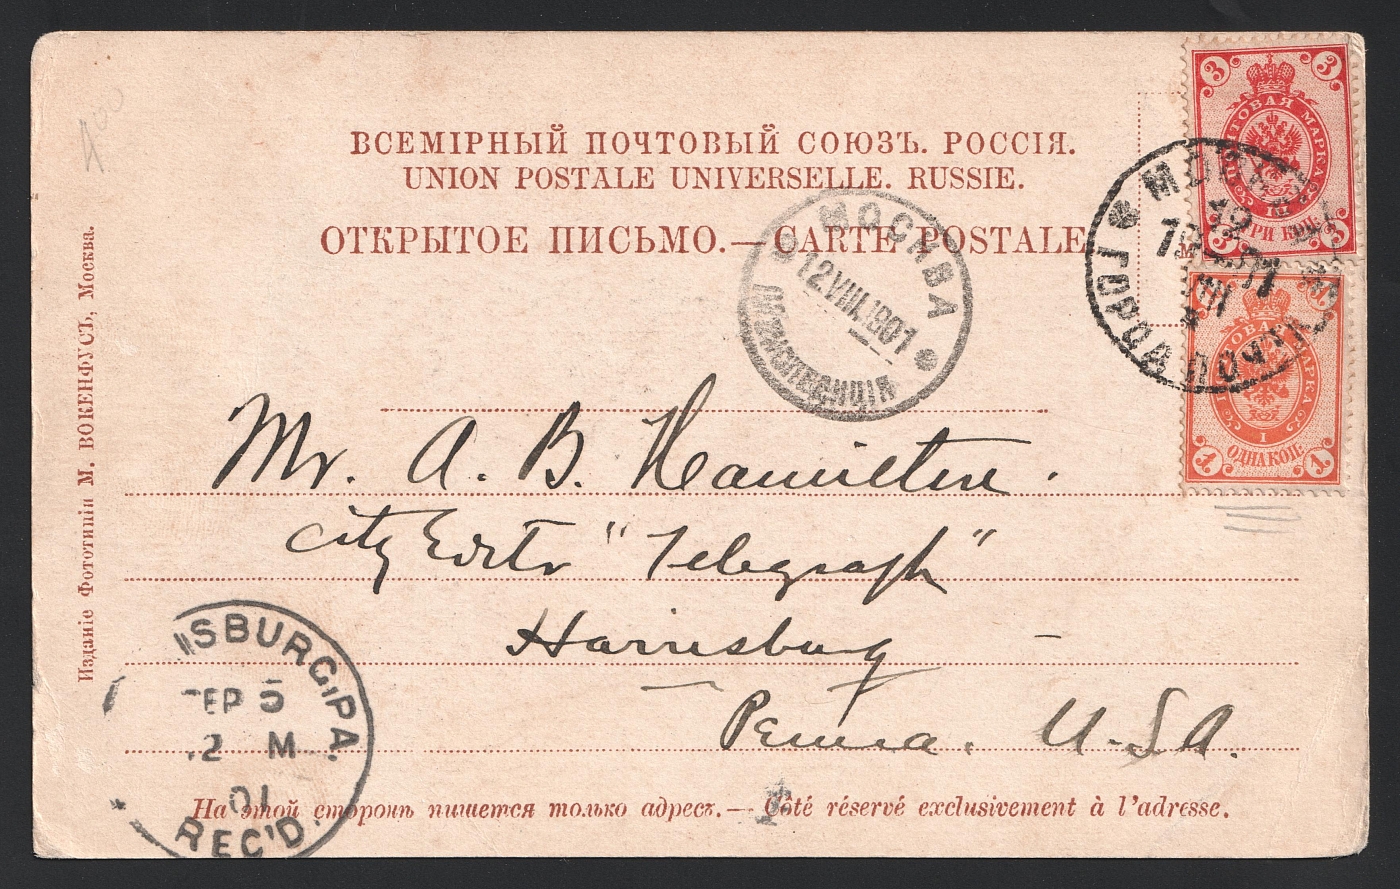 ВСЕМІРНЫЙ ПОЧТОВЫЙ СОЮЗЪ. РОССІЯ.
UNION POSTALE UNIVERSELLE. RUSSIE.
ОТКРЫТОЕ ПИСЬМО.—CARTE POSTALE
3 3
МАРКА
ТРИ КОП.
3 3
МОСКВА
12
1901
VIII
ГОРОД. ПОЧТА
МАРКА
1
ОДНА КОП.
1 1
МОСКВА
12 VIII. 1901
Mr. A. B. Hamilton.
City Editor "Telegraph"
Harrisburg
Penna. U.S.A.
ISBURG, PA.
SEP 5
2 M
01
REC'D.
На этой сторонѣ пишется только адресъ.— Côté réservé exclusivement à l'adresse.
Изданіе Фототипіи М. ВОКЕНФУСЪ, Москва.